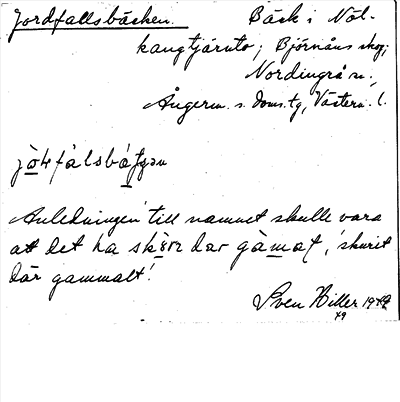 Jordfallsbäcken. Bäck i Nöl-
kangtjärnto; Björnåns skog;
Nordingrå sn.;
Ångerm. s. doms.tg, Västern. l.
Anledningen till namnet skulle vara
att det ha dar gàmat, 'skurit
där gammalt'.
Sven Hiller 1949